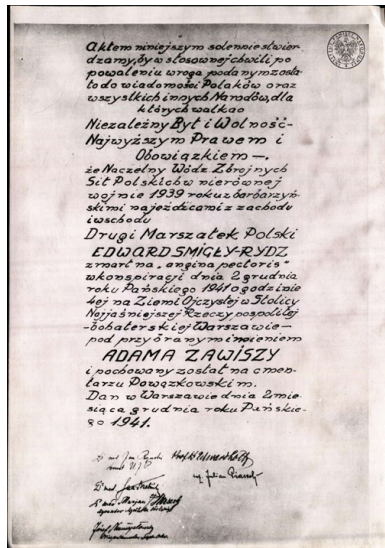 Aktem niniejszym solennie stwier-
dzamy, by w stosownej chwili po
powaleniu wroga podanym zosta-
ło do wiadomości Polaków oraz
wszystkich innych Narodów, dla
których walka o
Niezależny Byt i Wolność-
Najwyższym Prawem i
Obowiązkiem —,
że Naczelny Wódz Zbrojnych
Sił Polskich w nierównej
wojnie 1939 roku z barbarzyń-
skimi najeźdźcami z zachodu
i wschodu
Drugi Marszałek Polski
EDWARD ŚMIGŁY-RYDZ
zmarł na „angina pectoris"
w konspiracji dnia 2 grudnia
roku Pańskiego 1941 o godzinie
4ej na Ziemi Ojczystej w Stolicy
Najjaśniejszej Rzeczypospolitej
-bohaterskiej Warszawie—
pod przybranym imieniem
ADAMA ZAWISZY
i pochowany został na cmen-
tarzu Powązkowskim.
Dan w Warszawie dnia 2 mie-
siąca grudnia roku Pańskie-
go 1941.
Julian